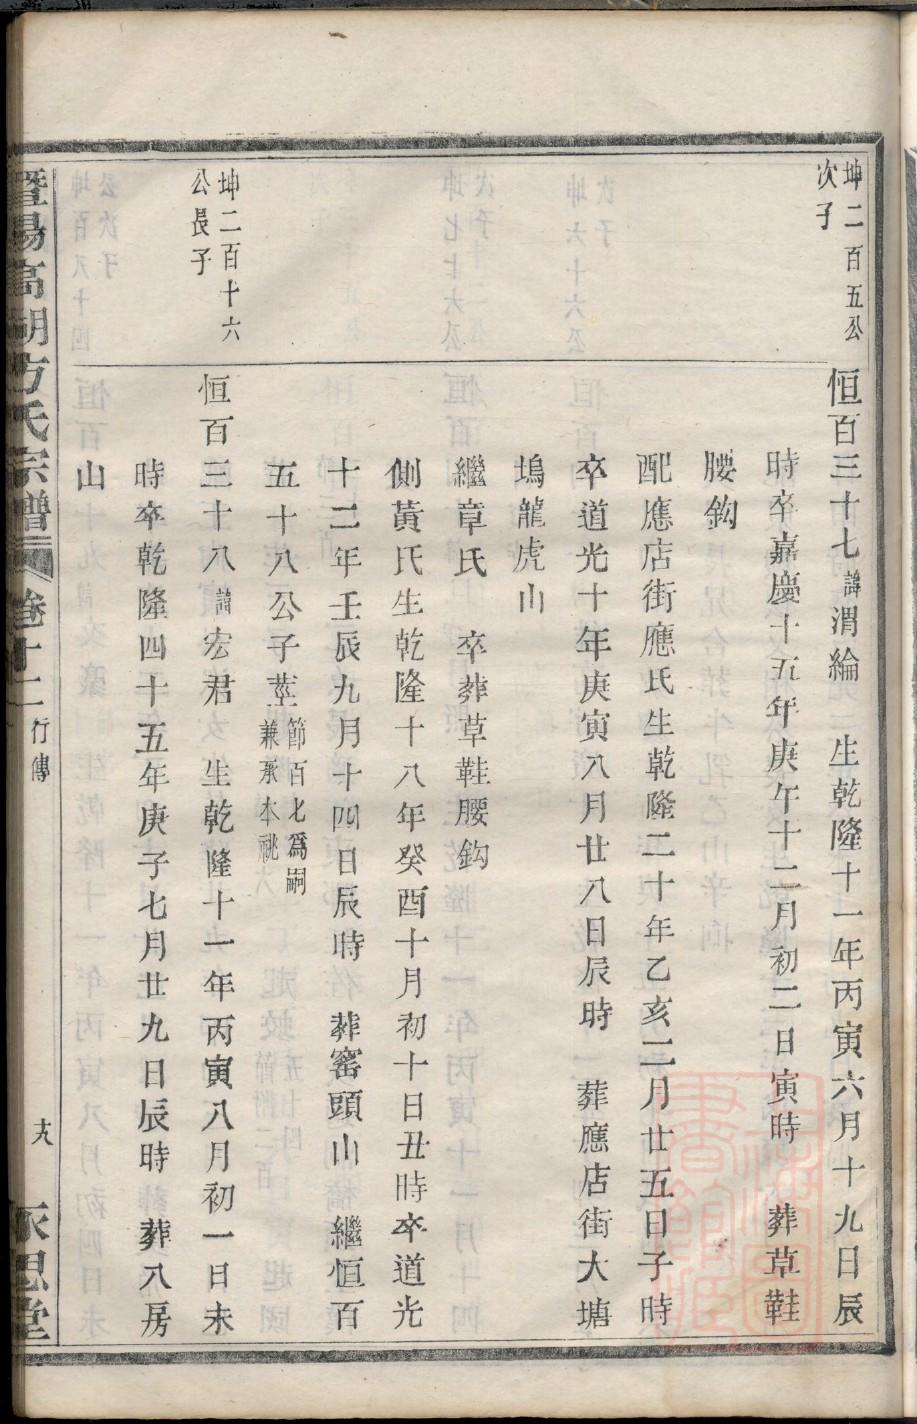 坤二百五公
次子
恒百三十七諱渭綸　生乾隆十一年丙寅六月十九日辰
時卒嘉慶十五年庚午十二月初二日寅時　葬草鞋
腰鈎
配應店街應氏生乾隆二十年乙亥二月廿五日子時
卒道光十年庚寅八月廿八日辰時　葬應店街大塘
塢龍虎山
繼章氏　卒葬草鞋腰鈎
側黃氏生乾隆十八年癸酉十月初十日丑時卒道光
十二年壬辰九月十四日辰時　葬窑頭山　繼恒百
五十八公子莖節百七爲嗣
兼承本祧
坤二百十六
公長子
恒百三十八諱宏君　生乾隆十一年丙寅八月初一日未
時卒乾隆四十五年庚子七月廿九日辰時　葬八房
山
暨陽高湖方氏宗譜　卷十二　行傳　永思堂